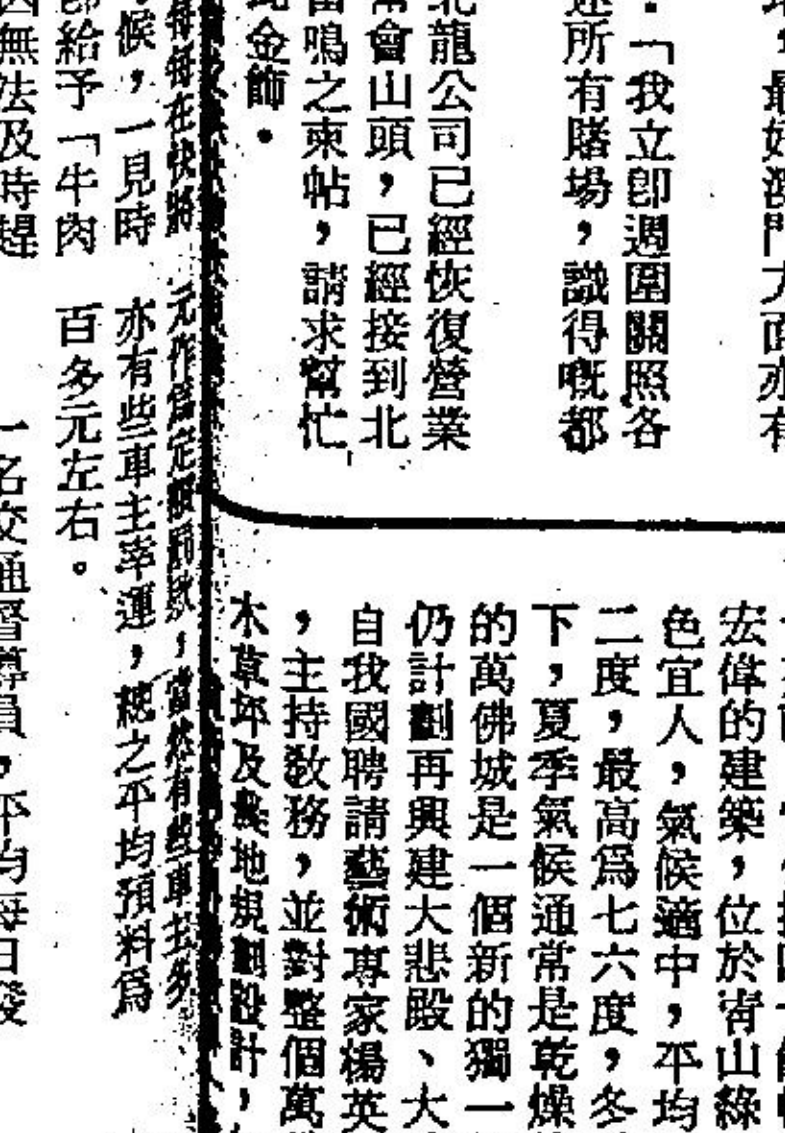 最好澳門方面亦有
「我立即週圍關照各
所有賭場，識得嘅都
龍公司已經恢復營業
會山頭，已經接到北
鳴之柬帖，請求幫忙
金飾．
宏偉的建築，位於青山綠
色宜人，氣候適中，平均
二度，最高爲七六度，冬
下，夏季氣候通常是乾燥
的萬佛城是一個新的獨一
仍計劃再興建大悲殿、大
自我國聘請藝術專家楊英
，主持敎務，並對整個萬
木草坪及 地規劃設計，
每每在快將
候，一見時
給予「牛肉
無法及時趕
元作爲 ，當然有些車主多
亦有些車主幸運，總之平均預料爲
百多元左右。
一名交通督導員，平均每日發